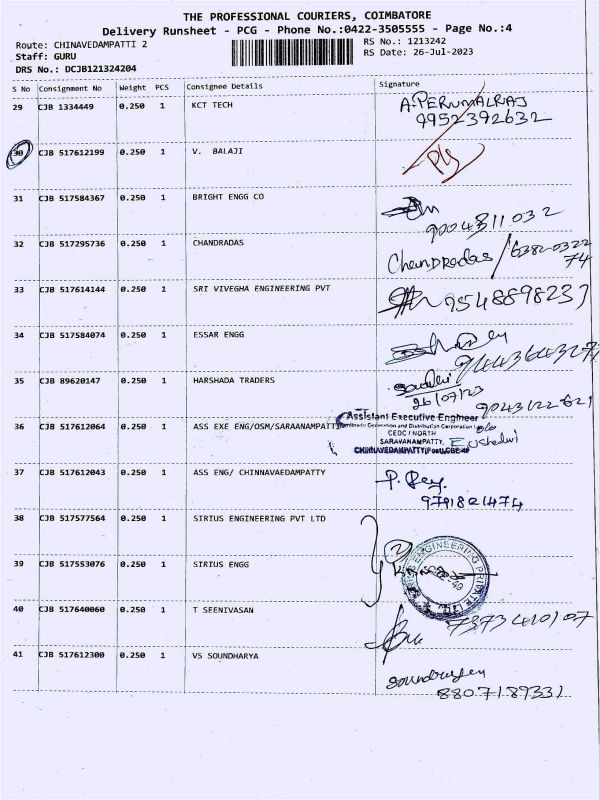 THE PROFESSIONAL COURIERS, COIMBATORE
Delivery Runsheet - PCG - Phone No.:0422-3505555 - Page No.:4
Route: CHINAVEDAMPATTI 2
RS No.: 1213242
Staff: GURU
RS Date: 26-Jul-2023
DRS No.: DCJB121324204
S No Consignment No Weight PCS Consignee Details Signature
29 CJB 1334449 0.250 1 KCT TECH A.PERUMALRAJ
9952392632
30 CJB 517612199 0.250 1 V. BALAJI
31 CJB 517584367 0.250 1 BRIGHT ENGG CO
9004811032
32 CJB 517295736 0.250 1 CHANDRADAS Chandradas / 6382-0322
74
33 CJB 517614144 0.250 1 SRI VIVEGHA ENGINEERING PVT 9548898237
34 CJB 517584074 0.250 1 ESSAR ENGG
35 CJB 89620147 0.250 1 HARSHADA TRADERS
26/07/23
9043122621
36 CJB 517612064 0.250 1 ASS EXE ENG/OSM/SARAANAMPATTI Assistant Executive Engineer
Generation and Distribution Corporation
CEDC / NORTH
SARAVANAMPATTY,
37 CJB 517612043 0.250 1 ASS ENG/ CHINNAVAEDAMPATTY
9791821474
38 CJB 517577564 0.250 1 SIRIUS ENGINEERING PVT LTD
39 CJB 517553076 0.250 1 SIRIUS ENGG 2
ENGINEERING PRIVATE
40 CJB 517640060 0.250 1 T SEENIVASAN 7373410107
41 CJB 517612300 0.250 1 VS SOUNDHARYA
8807189331